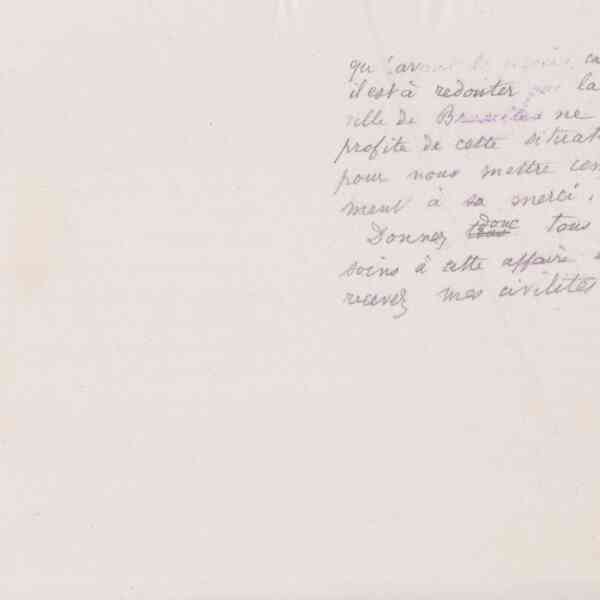 qu'avant
il est à redouter que la
ville de Bruxelles ne
profite de cette situat
pour nous mettre com
ment à sa merci.
Donnez donc tous
soins à cette affaire
recevez mes civilités